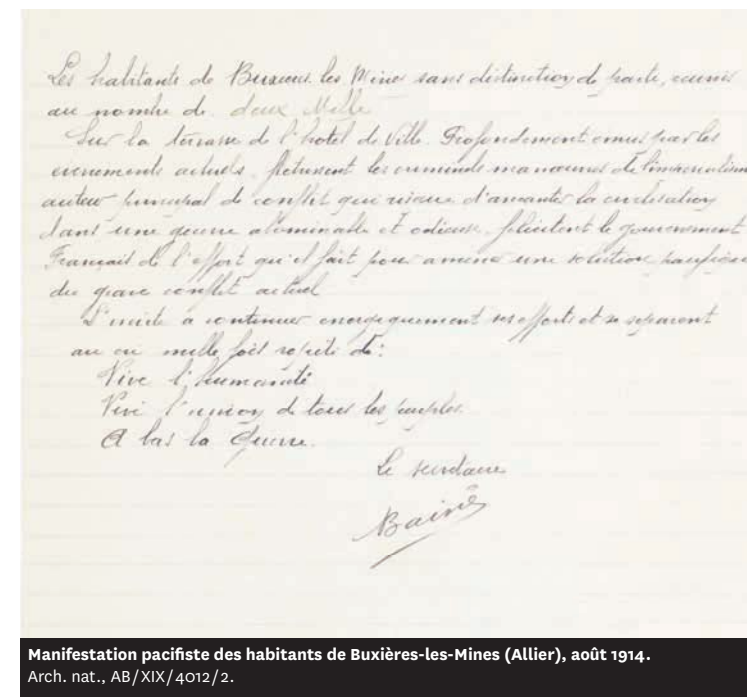 Les habitants de Buxieres les Mines sans distinction de parti, reunis
au nombre de deux Mille
Sur la terrasse de l'hotel de Ville. Profondement emus par les
evenements actuels. fletrissent les criminels manœuvres de l'imperialisme
auteur principal de conflit qui risque d'amanter la civilisation
dans une guerre abominable et odieuse. felicitent le gouvernement
Français de l'effort qu'il fait pour amener une solution pacifique
du grave conflit actuel
L'invite a continuer energiquement ses efforts et se separent
au cri mille fois repété de:
Vive l'humanité
Vive l'union de tous les peuples.
A bas la Guerre.
Le secretaire
Manifestation pacifiste des habitants de Buxières-les-Mines (Allier), août 1914.
Arch. nat., AB/XIX/4012/2.